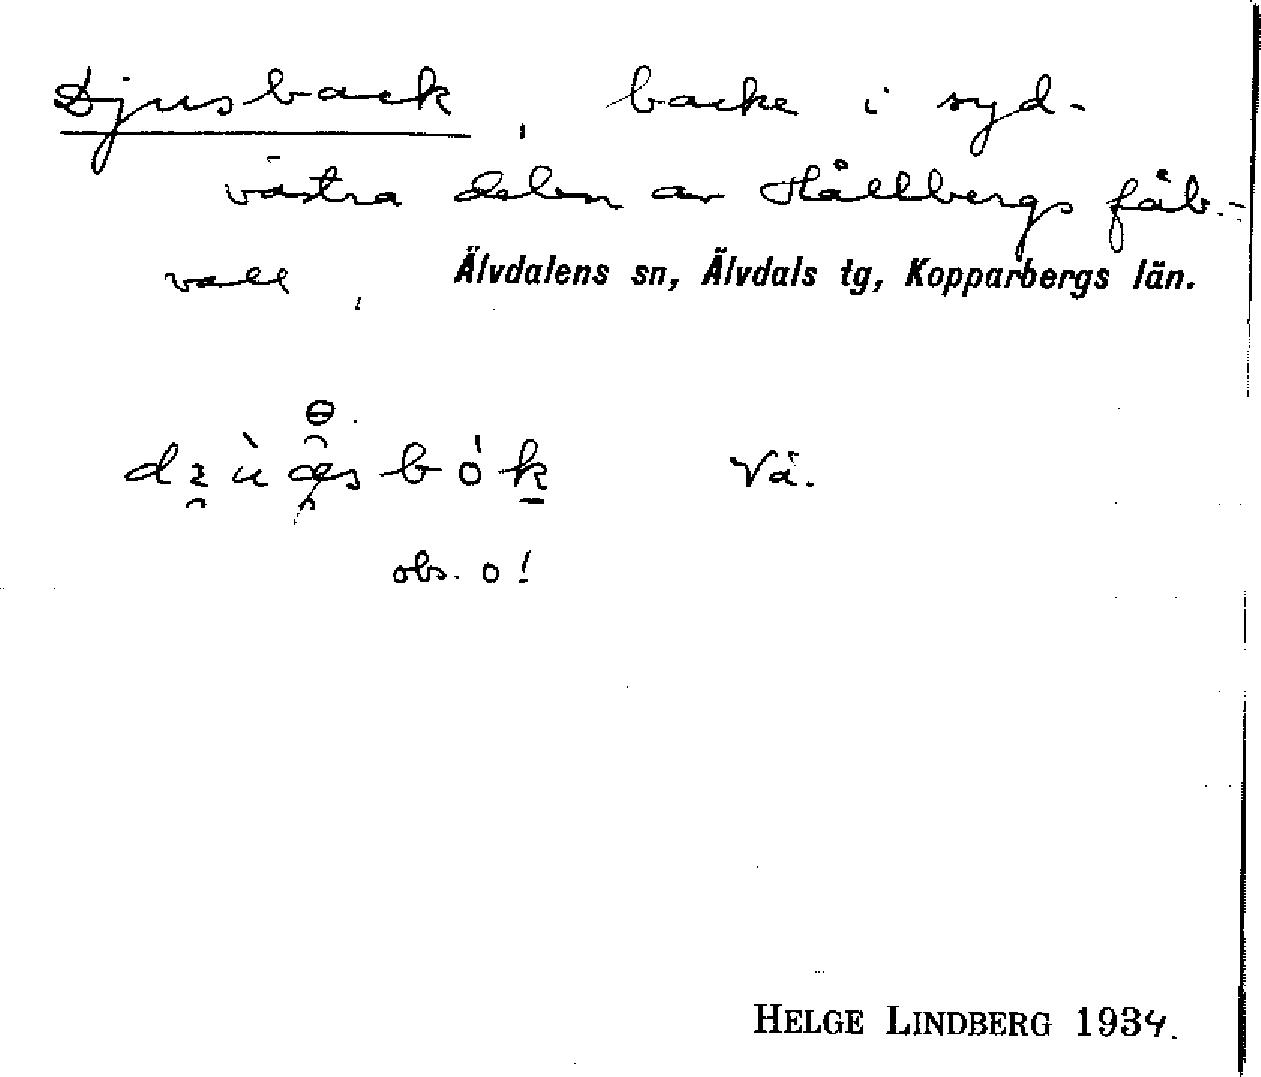 Djusback, backe i syd-
västra delen av Hållbergs fäb-
vall, Älvdalens sn, Älvdals tg, Kopparbergs län.
Vä.
obs. o!
HELGE LINDBERG 1934.